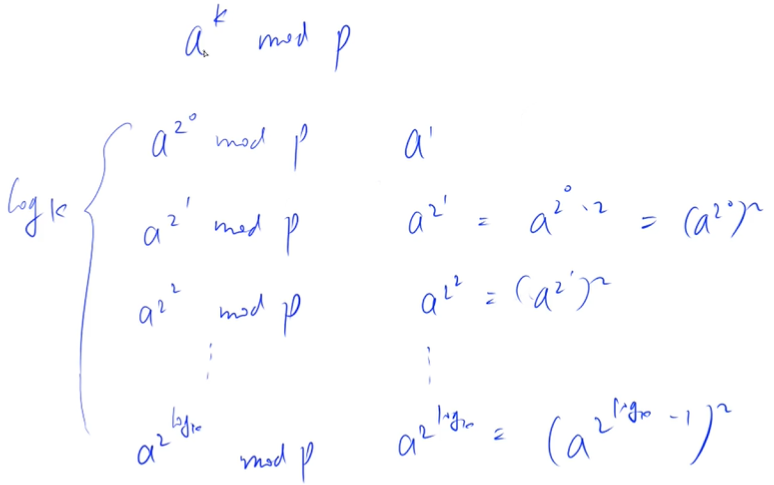 a^k mod p
a^{2^0} mod p    a^1
log k    a^{2^1} mod p    a^{2^1} = a^{2^0 · 2} = (a^{2^0})^2
a^{2^2} mod p    a^{2^2} = (a^{2^1})^2
⋮    ⋮
a^{2^{log k}} mod p    a^{2^{log k}} = (a^{2^{log k} - 1})^2